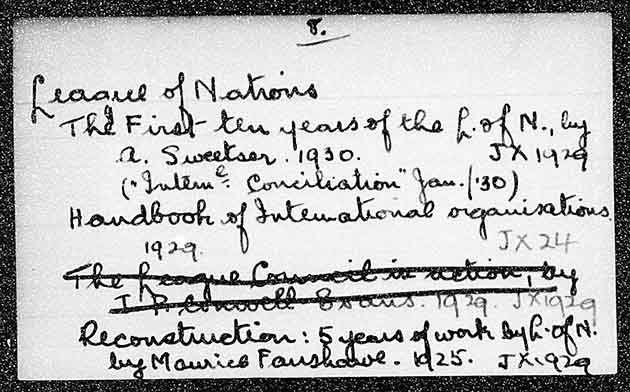 8.
League of Nations
The First ten years of the L. of N., by
A. Sweetser. 1930. JX1929
("Intern^e. Conciliation" Jan./'30)
Handbook of International organisations.
1929. JX24
The League Council in action, by
T. P. Conwell Evans. 1929. JX1929
Reconstruction: 5 years of work by L. of N.
by Maurice Fanshawe. 1925. JX1929